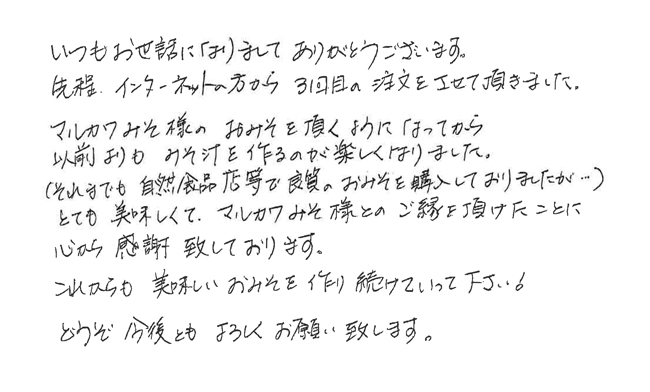 いつもお世話になりましてありがとうございます。
先程、インターネットの方から3回目の注文をさせて頂きました。
マルカワみそ様のおみそを頂くようになってから
以前よりもみそ汁を作るのが楽しくなりました。
(それまでも自然食品店等で良質のおみそを購入しておりましたが…)
とても美味しくて、マルカワみそ様とのご縁を頂けたことに
心から感謝致しております。
これからも美味しいおみそを作り続けていって下さい。
どうぞ今後ともよろしくお願い致します。